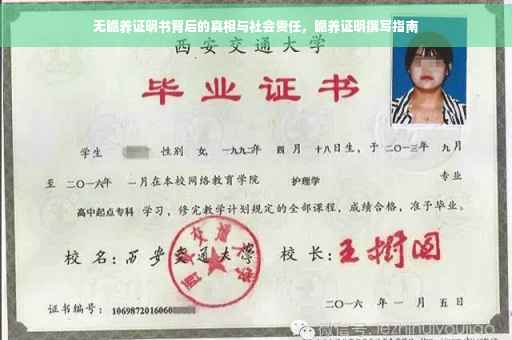 无赡养证明书背后的真相与社会责任，赡养证明撰写指南
西安交通大学
毕业证书
学生 性别 女，一九九二年 四月 十八日生，于二〇一三年 九月
至 二〇一六年 一月在本校网络教育学院 护理学 专业
高中起点专科 学习，修完教学计划规定的全部课程，成绩合格，准予毕业。
校名：西安交通大学 校长：王树国
西安交通大学
证书编号：1069872016060
二〇一六年 一月 五日
微信号: jezhihuiyoujiao